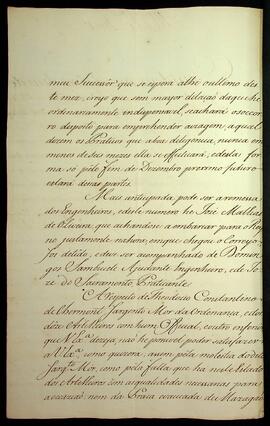 meu Sucessor que se espera athe o ultimo des
te mez, creyo que sem mayor dilação da que he
ordinariamente indispensavel, se achará o socor
ro disposto para emprehender a viagem, a qual
dizem os Praticos que a boa deligencia, nunca em
menos de seis mezes ella se effeituará, e desta for
ma só pelo fim de Dezembro proximo futuro
estará dessas partes.
Mais anticipada pode ser a remessa
dos Engenheiros, e deste numero he José Mathias
de Oliveira, que achandose a embarcar para o Rey
no justamente na hora em que chegou o Correyo
foi detido, e deve ser acompanhado de Domin
gos Samhuel Ajudante Engenheiro, e de Jo
ze do Sacramento Praticante
A respeito de Theodozio Constantino
de Chermont Sargento Mor da Ordenança, e dos
doze Artelheiros com hum Official, e outro inferior
que V. Ex.ª dezeja, não he possivel poder satisfazer
a V. Ex.ª como quizera, assim pela molestia do dito
Sarg.to Mor, como pela falta que ha neste Estado
dos Artelheiros com as qualidades necessarias para
a extinção nem da Praça evacuada de Mazagão